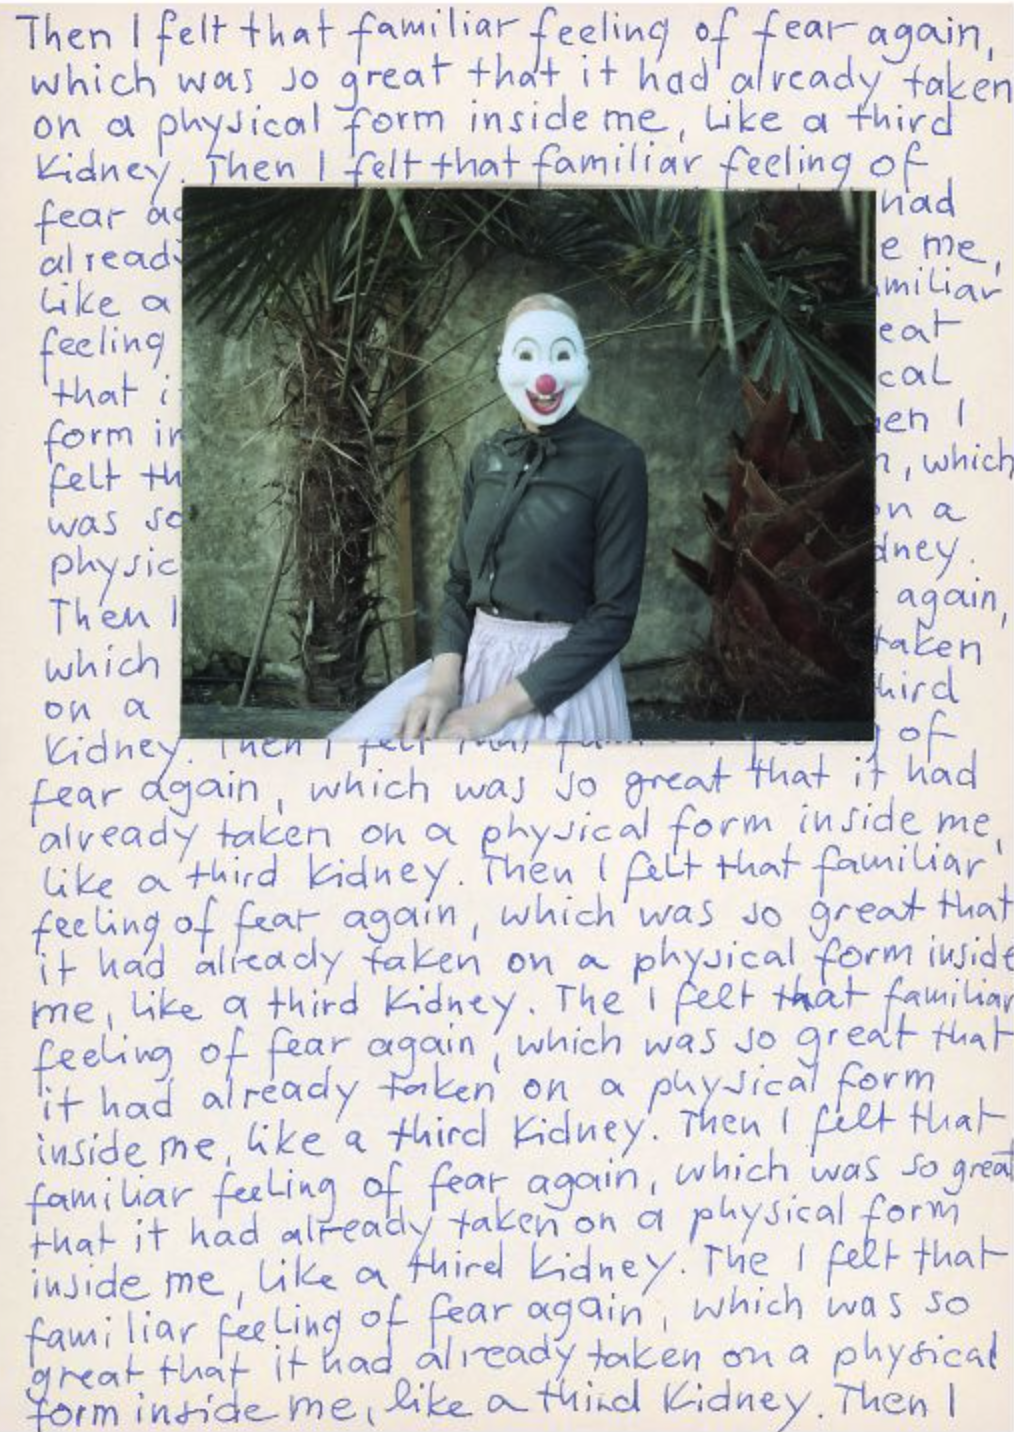 Then I felt that familiar feeling of fear again,
which was so great that it had already taken
on a physical form inside me, like a third
Kidney. Then I felt that familiar feeling of
fear ag had
already e me,
like a amiliar
feeling eat
that i cal
form in en I
felt th n, which
was so on a
physic dney.
Then I again,
which taken
on a hird
Kidney. Then I felt that of
fear again, which was so great that it had
already taken on a physical form inside me,
like a third kidney. Then I felt that familiar
feeling of fear again, which was so great that
it had already taken on a physical form inside
me, like a third kidney. The I felt that familiar
feeling of fear again, which was so great that
it had already taken on a physical form
inside me, like a third kidney. Then I felt that
familiar feeling of fear again, which was so great
that it had already taken on a physical form
inside me, like a third kidney. The I felt that
familiar feeling of fear again, which was so
great that it had already taken on a physical
form inside me, like a third Kidney. Then I